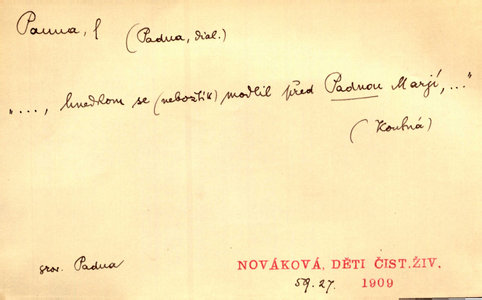 Panna, f (Padna, dial.)
"..., hnedkom se (nebožtík) modlil před Padnou Marjí, ..."
(Koubná)
srov. Padna
NOVÁKOVÁ, DĚTI ČIST.ŽIV.
59.27. 1909